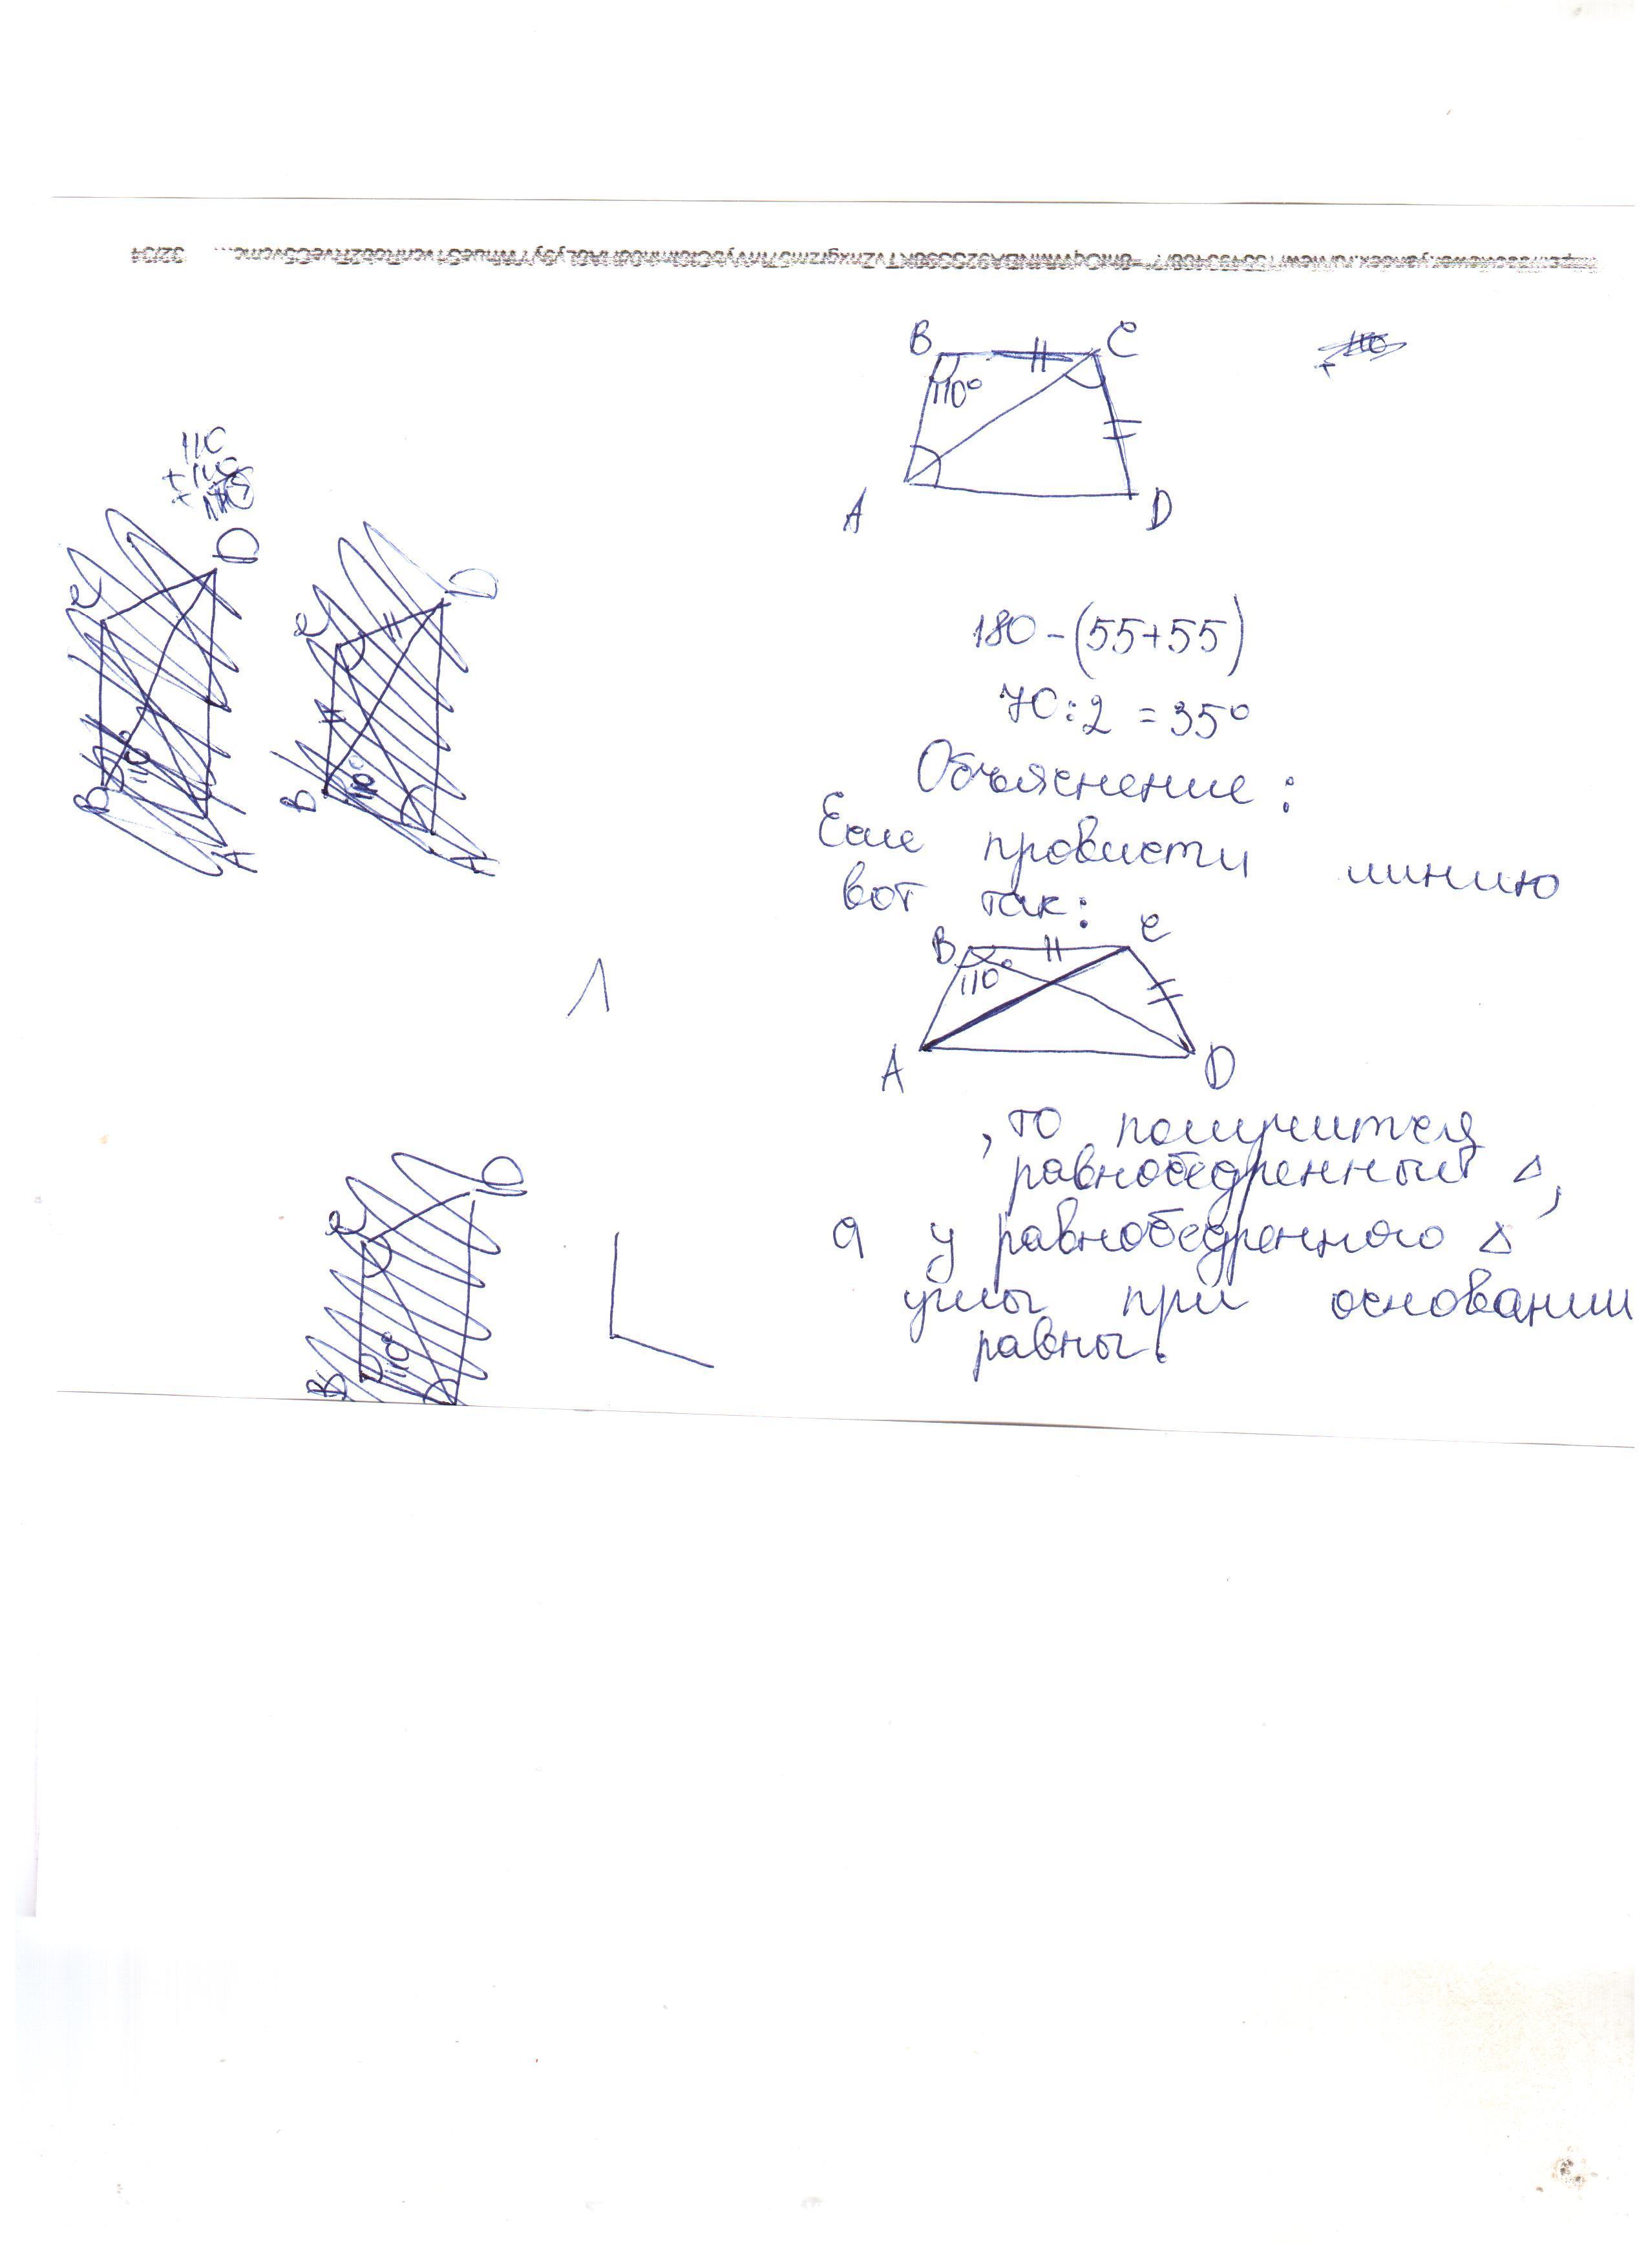 B C
110°
A D
180-(55+55)
70:2 = 35°
Объяснение:
Если провисти линию
вот так:
B C
110°
A D
, то получится
равнобедренный Δ,
а у равнобедренного Δ
углы при основании
равны.
110
D
C
B
110°
A
D
C
B
110°
A
D
C
B
110°
32/34